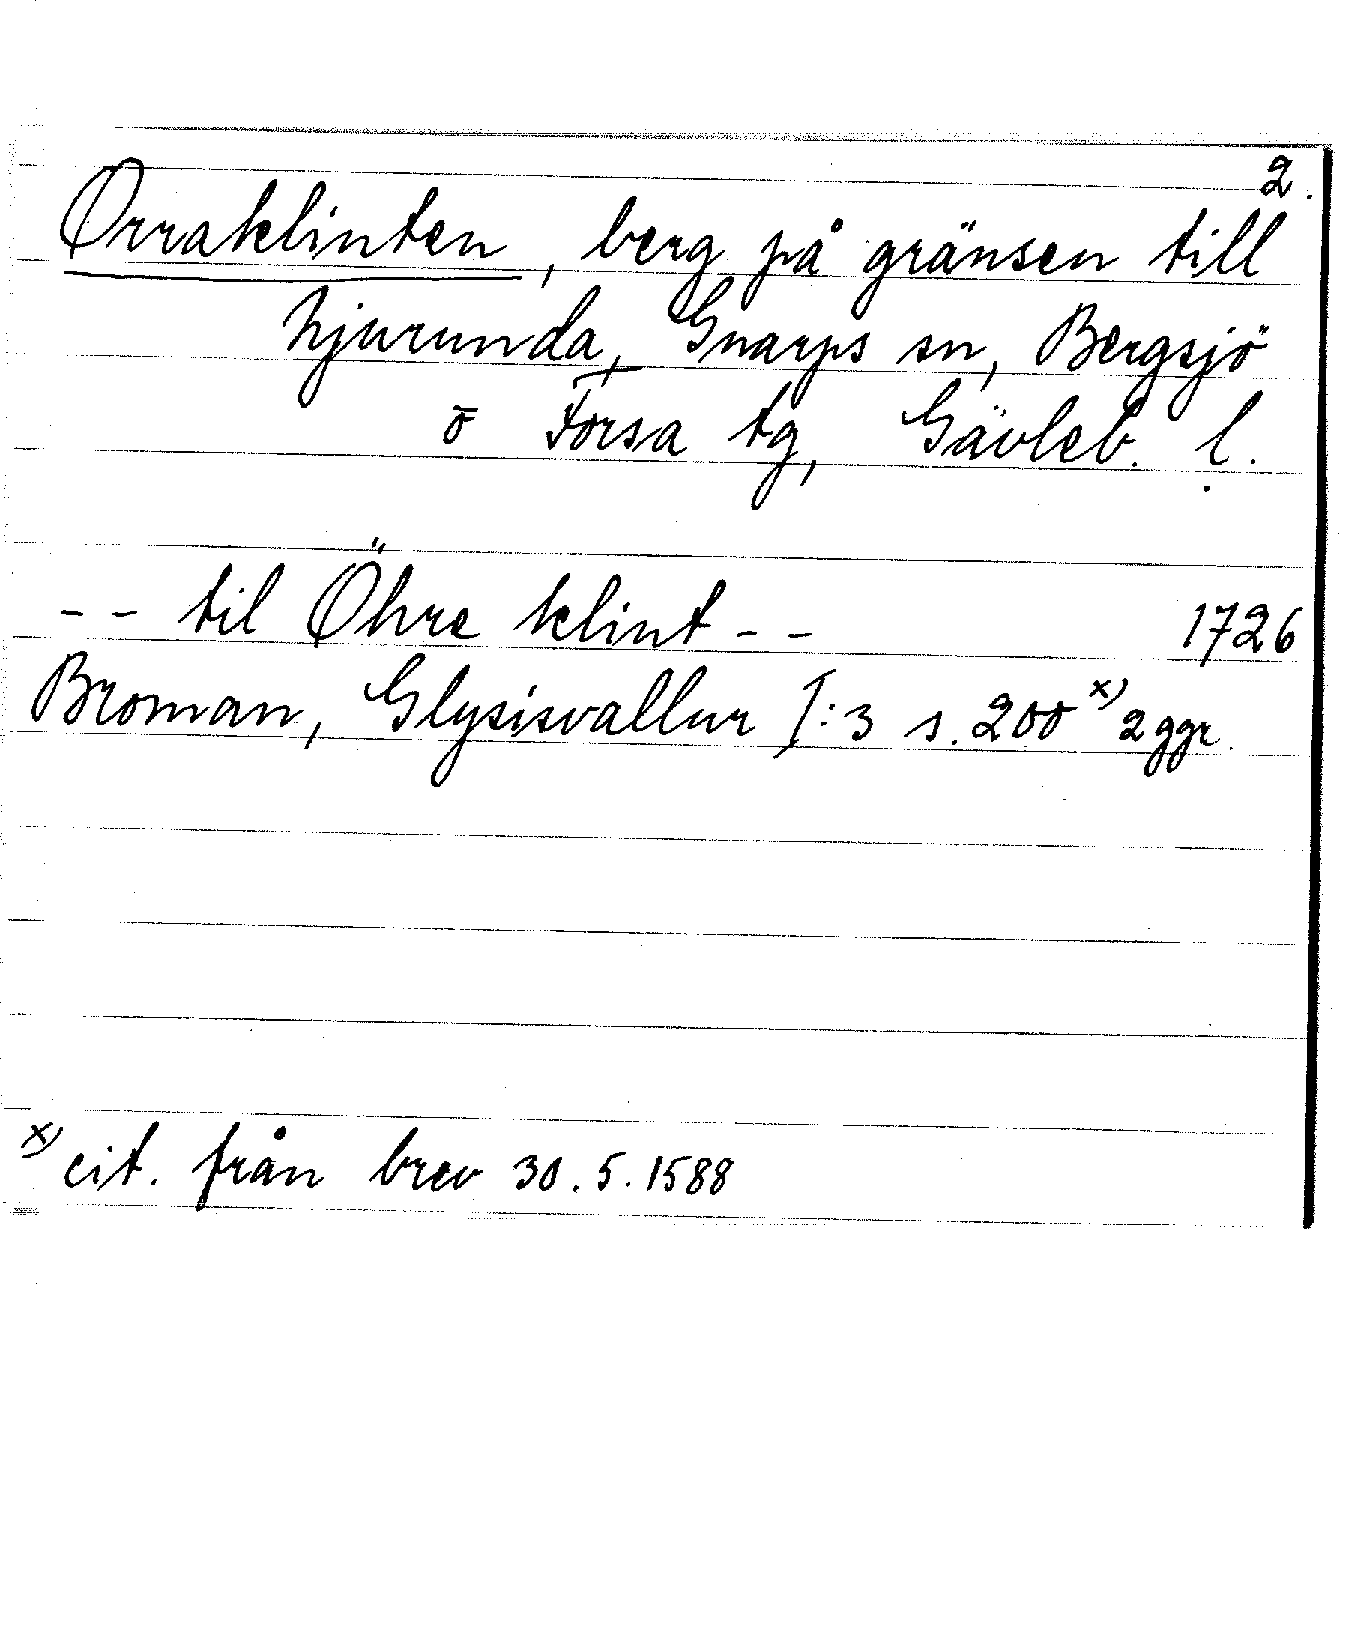 2.
Orraklinten, berg på gränsen till
Njurunda, Gnarps sn, Bergsjö
o Forsa tg, Gävleb. l.
-- til Öhre klint -- 1726
Broman, Glysisvallur I:3 s. 200 x) 2 ggr.
x) cit. från brev 30.5.1588